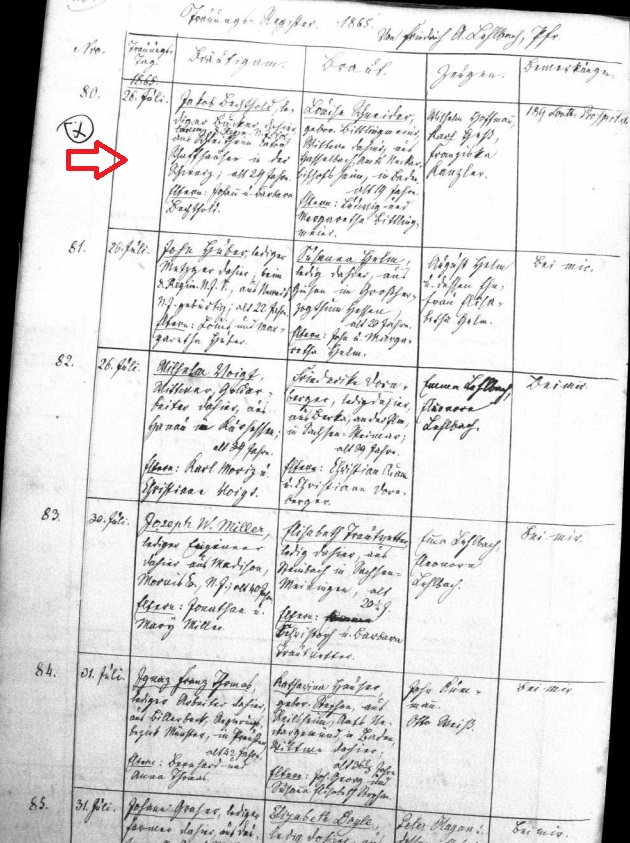 Trauungs-Register. 1865.
Von Friedrich A. Lehlbach, Pfr.
Nro.
Trauungs-Tag
Bräutigam.
Braut.
Zeugen.
Bemerkungen.
1865
80.
25. Juli.
Jakob Bechthold, le-
diger Bäcker, dahier
aus Schleitheim Canton
Schaffhausen in der
Schweiz; alt 29 Jahre.
Eltern: Johann u. Barbara
Bechthold.
Louise Schneider,
geborne Bittlingmeier,
Wittwe dahier, aus
Hasselbach, Amts Neckar-
bischofsheim, in Baden,
alt 29 Jahre.
Eltern: Ludwig und
Margaretha Bittling-
meier.
Wilhelm Hoffman,
Karl Heß,
Franziska
Kanzler.
189
81.
26. Juli.
John Huber, lediger
Metzger dahier, beim
N.J. gebürtig; alt 22 Jahre.
Eltern: Louis und Mar-
garetha Huber.
Susanna Helm,
ledig dahier, aus
in Großher-
zogthum Hessen,
alt 20 Jahre.
Eltern: Joh. u. Marga-
retha Helm.
August Helm
u. dessen Ehe-
frau Elisa-
betha Helm.
Bei mir.
82.
26. Juli.
Wilhelm Voigt,
Wittwer, Goldar-
beiter dahier, aus
Hanau in Kurhessen;
alt 34 Jahre.
Eltern: Karl Moriz u.
Christiane Voigt.
Friederike Dorn-
berger, ledig dahier,
aus Berka, an der Ilm,
in Sachsen-Weimar;
alt 39 Jahre.
Eltern: Christian Adam
u. Christiane Dorn-
berger.
Emma Lehlbach,
Eleonora
Lehlbach.
Bei mir.
83.
30. Juli.
Joseph W. Miller,
lediger Engineer
dahier aus Madison,
Morris Co., N.J.; alt 40 Jahre.
Eltern: Jonathan u.
Mary Miller.
Elisabeth Trautvetter,
ledig dahier, aus
Steinbach in Sachsen-
Meiningen, alt
20½ J.
Eltern:
Christoph u. Barbara
Trautvetter.
Emma Lehlbach,
Eleonora
Lehlbach.
Bei mir.
84.
31. Juli.
Ignaz Franz Thomas,
lediger Arbeiter dahier,
aus Billerbeck, Regierungs-
bezirk Münster, in Preußen,
alt 42 Jahre.
Eltern: Bernhard und
Anna Thomas
Katharina Häußer,
geborne Stephan, aus
Amts Ne-
ckargemünd in Baden,
Wittwe dahier;
alt 36½ Jahre
Eltern: Joh. Georg und
Susanna Elisabeth Stephan.
John
Otto Weiß.
Bei mir
85.
31. Juli.
Johann lediger
Farmer dahier, aus
Elizabeth Doyle,
ledig dahier, aus
Peter Hagan u.
Bei mir.